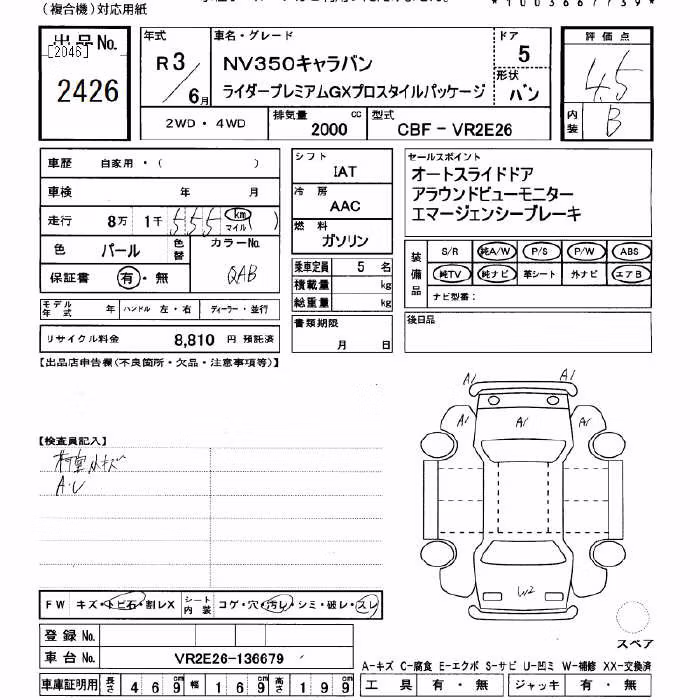 (複合機)対応用紙
*1003667739*
出品No. [2046] 2426
年式 R3/6月
車名・グレード NV350キャラバン
ライダープレミアムGXプロスタイルパッケージ
ドア 5
形状 バン
評価点 4.5
内装 B
2WD・4WD
排気量 2000 cc
型式 CBF-VR2E26
車歴 自家用・( )
車検 年 月
走行 8万 1千 555 km マイル( )
色 パール 色替 カラーNo. QAB
保証書 有・無
モデル年式 年 ハンドル 左・右 ディーラー・並行
リサイクル料金 8,810 円 預託済
シフト IAT
冷房 AAC
燃料 ガソリン
乗車定員 5 名
積載量 kg
総重量 kg
書類期限 月 日
セールスポイント
オートスライドドア
アラウンドビューモニター
エマージェンシーブレーキ
装備品 S/R 純A/W P/S P/W ABS
純TV 純ナビ 革シート 外ナビ エアB
ナビ型番:
後日品
【出品店申告欄(不良箇所・欠品・注意事項等)】
【検査員記入】
A.U
A1 A1
A1 A1 A1
W2
スペア
FW キズ・トビ石・割レX シート内装 コゲ・穴・汚レ・シミ・破レ・スレ
登録No.
車台No. VR2E26-136679
車庫証明用 長さ 469 幅 169 高さ 199
A-キズ C-腐食 E-エクボ S-サビ U-凹ミ W-補修 XX-交換済
工具 有・無 ジャッキ 有・無